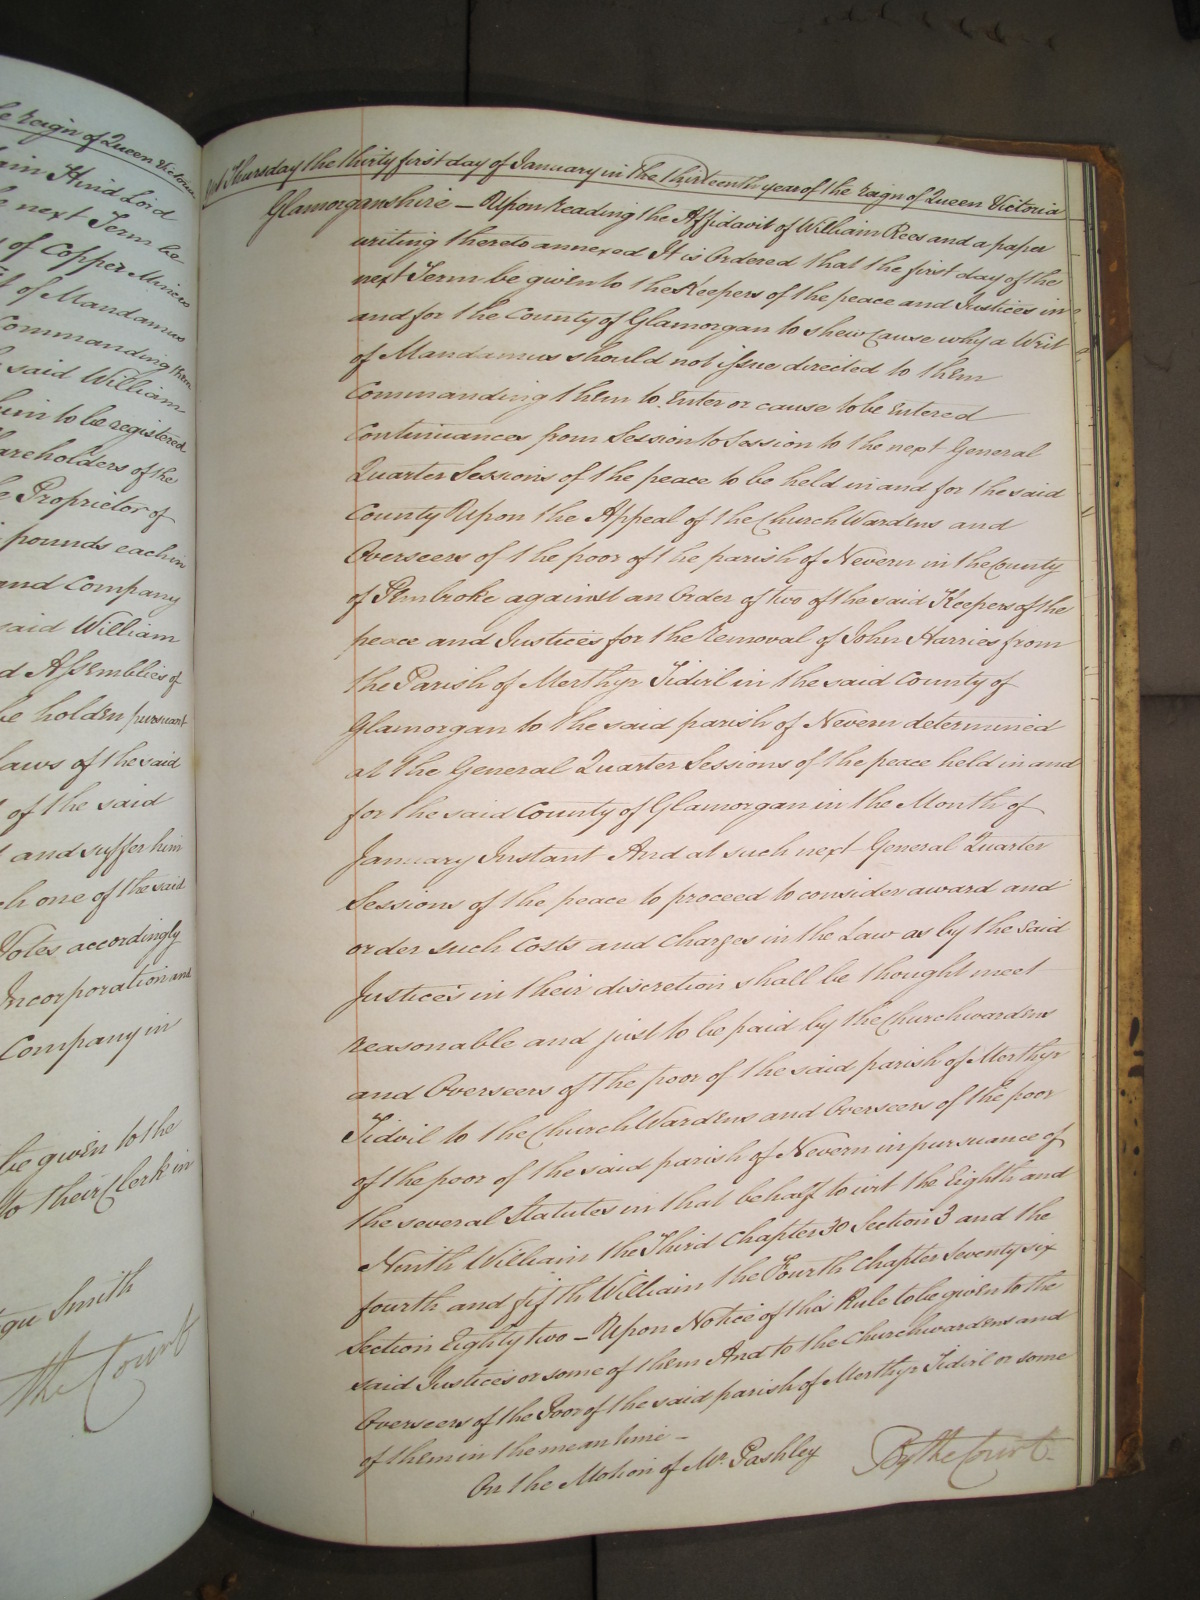 e reign of Queen Victoria
ain Hind Loid
e next Term be
s of Copper Miners
it of Mandamus
Commanding them
said William
him to be registered
hareholders of the
e Proprietor of
pounds each in
and Company
said William
d Assemblies of
be holden pursuant
laws of the said
of the said
and suffer him
ch one of the said
Votes accordingly
Incorporation and
Company in
be given to the
to their Clerk in
gu Smith
the Court
On Thursday the thirty first day of January in the Thirteenth year of the reign of Queen Victoria
Glamorganshire – Upon reading the Affidavit of William Rees and a paper
writing thereto annexed It is Ordered that the first day of the
next Term be given to the Keepers of the peace and Justices in
and for the County of Glamorgan to shew Cause why a Writ
of Mandamus should not issue directed to them
Commanding them to Enter or cause to be Entered
Continuances from Session to Session to the next General
Quarter Sessions of the peace to be held in and for the said
County Upon the Appeal of the Church Wardens and
Overseers of the poor of the parish of Nevern in the County
of Pembroke against an Order of two of the said Keepers of the
peace and Justices for the removal of John Harries from
the Parish of Merthyr Tidvil in the said County of
Glamorgan to the said parish of Nevern determined
at the General Quarter Sessions of the peace held in and
for the said County of Glamorgan in the Month of
January Instant And at such next General Quarter
Sessions of the peace to proceed to consider award and
order such Costs and Charges in the Law as by the said
Justices in their discretion shall be thought meet
reasonable and just to be paid by the Churchwardens
and Overseers of the poor of the said parish of Merthyr
Tidvil to the Church Wardens and Overseers of the poor
of the poor of the said parish of Nevern in pursuance of
the several Statutes in that behalf to wit the Eighth and
Ninth William the Third Chapter 30 Section 3 and the
fourth and fifth William the Fourth Chapter Seventy six
Section Eighty two – Upon Notice of this Rule to be given to the
said Justices or some of them And to the Churchwardens and
Overseers of the Poor of the said parish of Merthyr Tidvil or some
of them in the mean time –
On the Motion of Mr. Pashley By the Court.